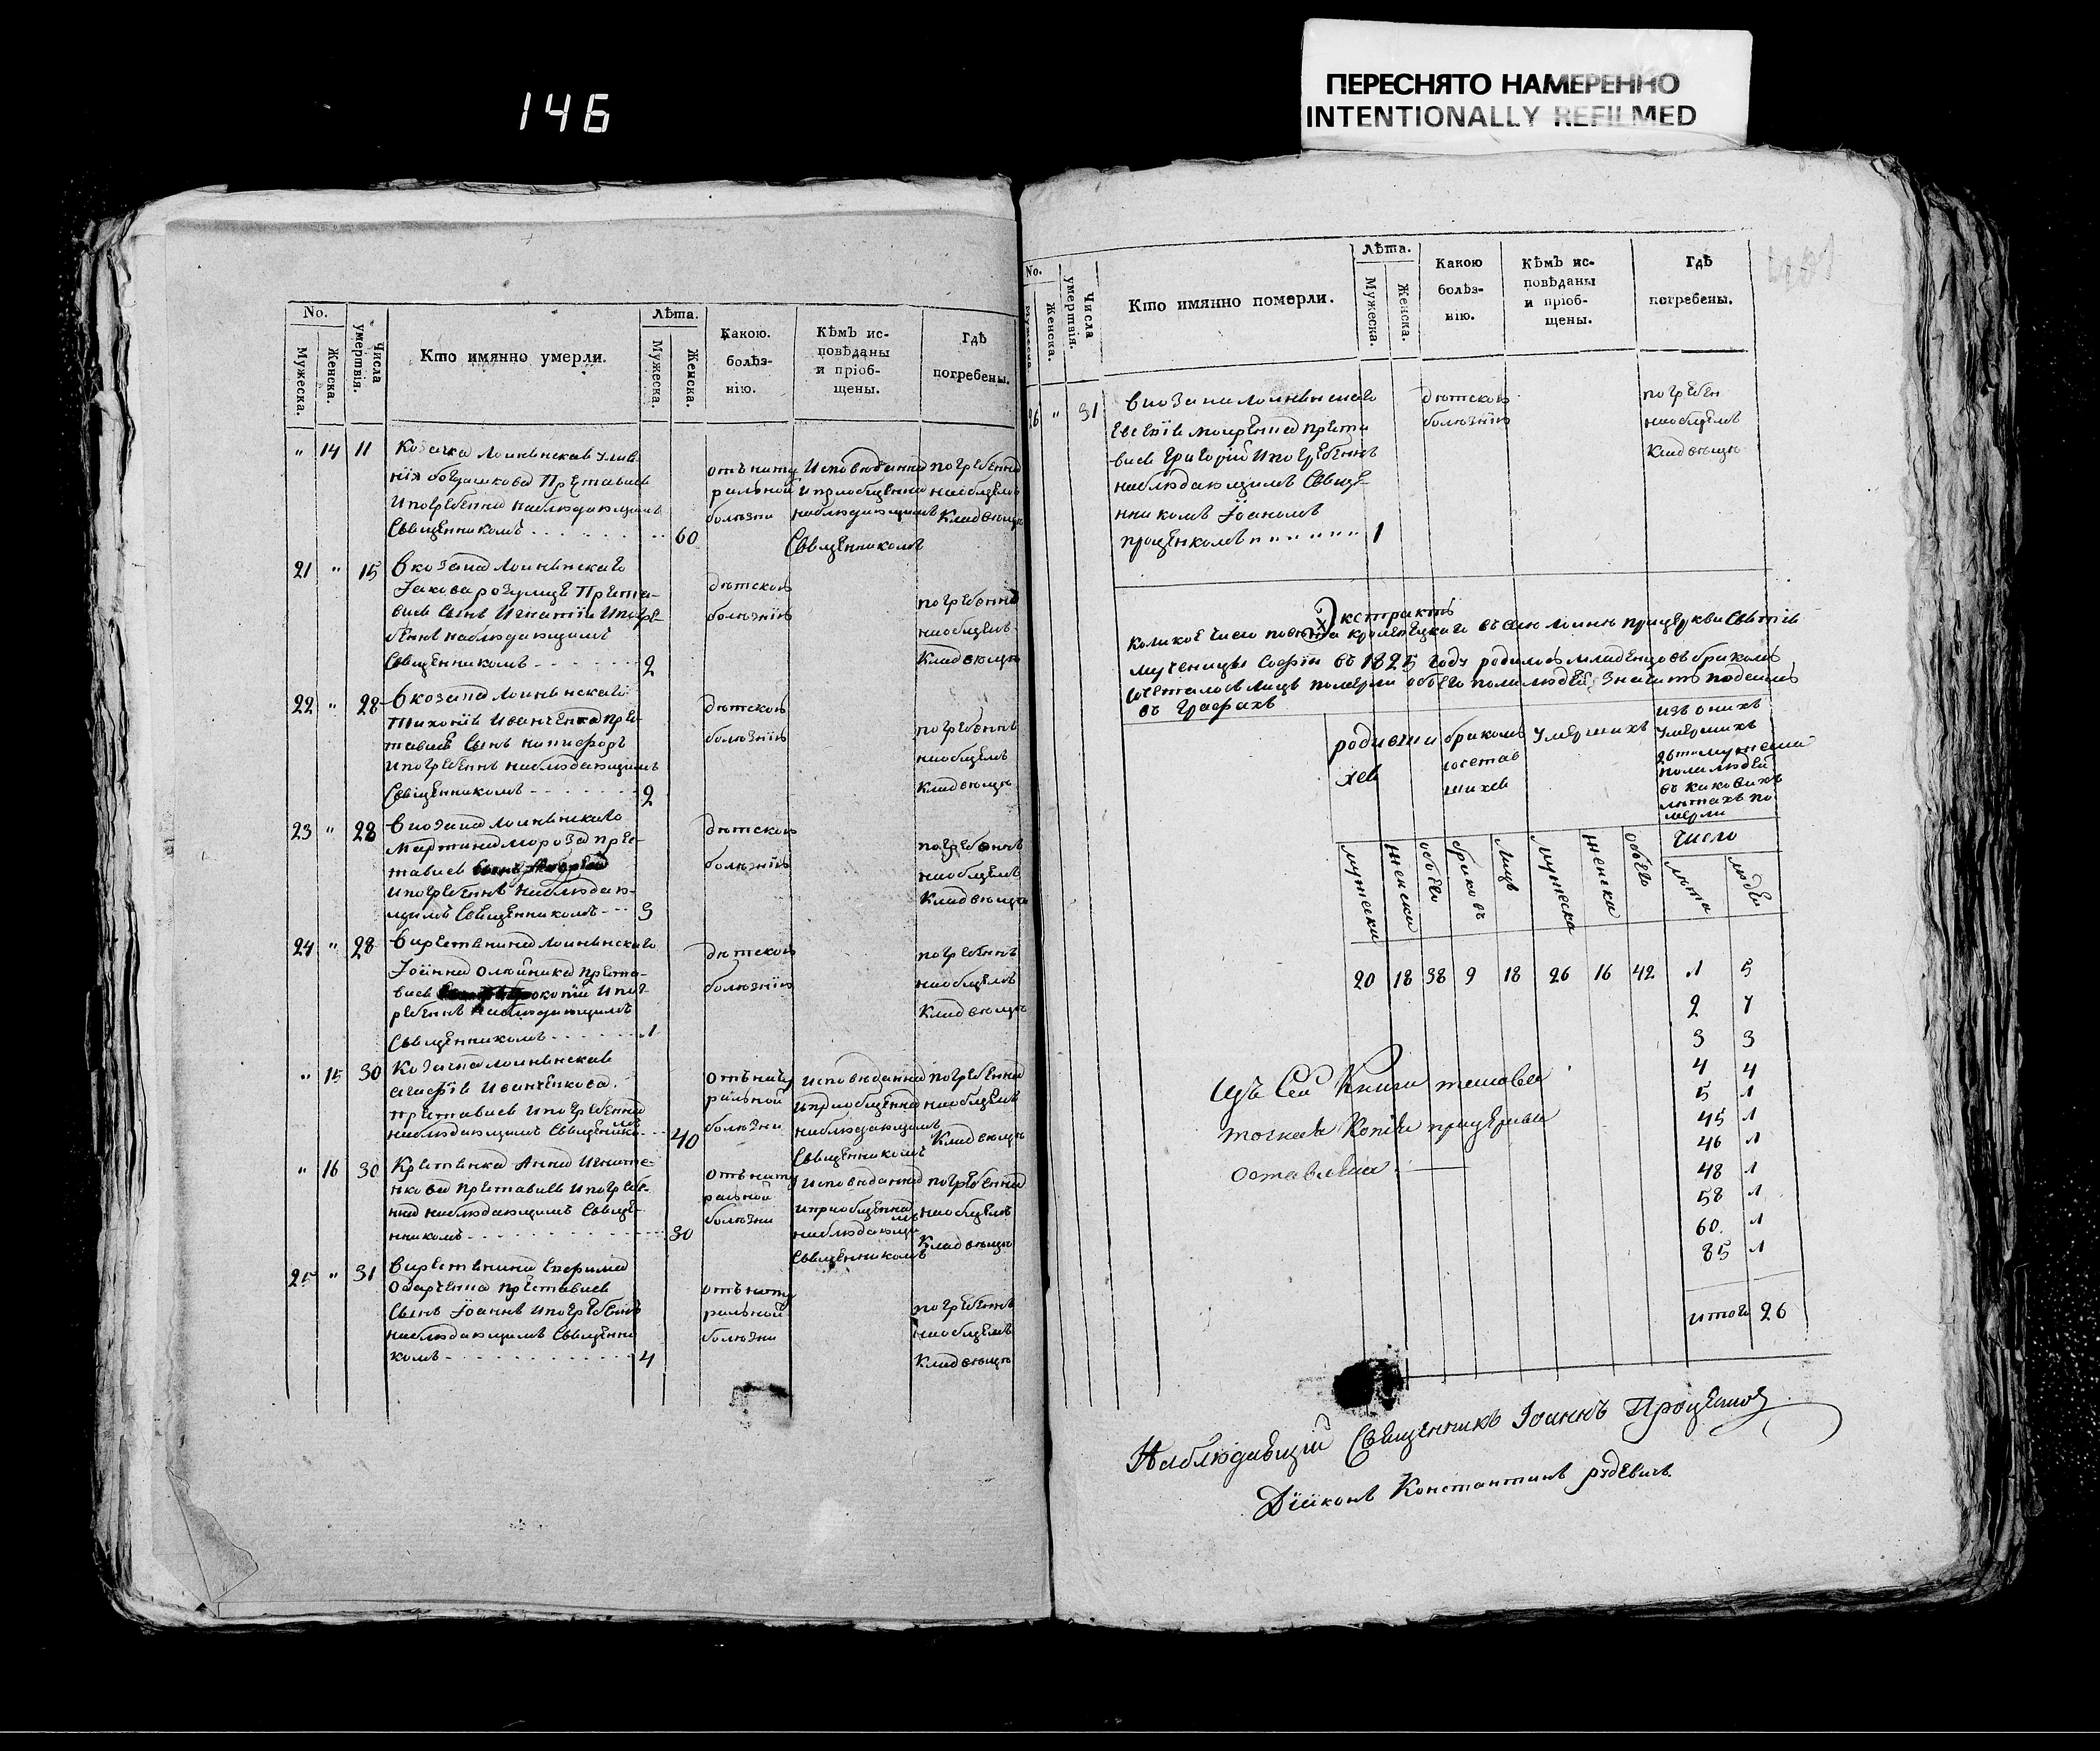 146
ПЕРЕСНЯТО НАМЕРЕННО
INTENTIONALLY REFILMED
No. Лѣта.
Мужеска. Женска. Числа умертвія. Кто имянно умерли. Мужеска. Женска. Какою болѣз-нію. Кѣмъ ис-повѣданы и пріоб-щены. Гдѣ погребены.
" 14 11 Козачка
Преставися
и погребенна наблюдающимъ
Священникомъ 60
отъ нату
ральной
болѣзни
Исповѣданна
и приобщенна
наблюдающимъ
Священникомъ
погребенна
на общемъ
Кладвищѣ
21 " 15 В козака
Іакова Преста-
вися Сынъ Игнатій и погре-
бѣнъ наблюдающимъ
Священникомъ 2
дѣтскою
болѣзнію
погребеннъ
на общемъ
Кладвищѣ
22 " 28 В козака
Иванченка прес-
тавися Сынъ
и погребеннъ наблюдающимъ
Священникомъ 2
дѣтскою
болѣзнію
погребеннъ
на общемъ
Кладвищѣ
23 " 28 В козака
Мартина Мороза прес-
тавися
и погребеннъ наблюдаю-
щимъ Священникомъ 3
дѣтскою
болѣзнію
погребеннъ
на общемъ
Кладвищѣ
24 " 28
Іоанна Олѣйника преста-
вися и пог-
ребеннъ наблюдающимъ
Священникомъ 1
дѣтскою
болѣзнію
погребеннъ
на общемъ
Кладвищѣ
" 15 30 Козачка
Агафія Иванченкова
преставися и погребенна
наблюдающимъ Священнико-
мъ 40
отъ нату
ральной
болѣзни
исповѣданна
и приобщенна
наблюдающимъ
Священникомъ
погребенна
на общемъ
Кладвищѣ
" 16 30 Крестянка Анна Игнате-
нкова преставися и погребе-
нна наблюдающимъ Священ-
никомъ 30
отъ нату
ральной
болѣзни
исповѣданна
и приобщенна
наблюдающимъ
Священникомъ
погребенна
на общемъ
Кладвищѣ
25 " 31
преставися
Сынъ Іоаннъ и погребеннъ
наблюдающимъ Священни
комъ 4
отъ нату
ральной
болѣзни
погребеннъ
на общемъ
Кладвищѣ
No. Лѣта.
Женска. Числа умертвія. Кто имянно померли. Мужеска. Женска. Какою болѣз-нію. Кѣмъ ис-повѣданы и пріоб-щены. Гдѣ погребены.
26 " 31 В козака
Евсевія преста
вися Григорій и погребеннъ
наблюдающимъ Свяще-
нникомъ Іоаномъ
проценкомъ " " " " " " 1
дѣтскою
болѣзнію
погребен
на общемъ
Кладвищѣ
Экстрактъ
Коликое число повѣта въ селѣ при церкви Святія
мученицы Софіи въ 1825 году родилось младенцовъ бракомъ
сочеталось лицъ померли обоего пола людей, значитъ
въ графахъ
родивши
хся
бракомъ
сочетав
шихся
умершихъ
изъ онихъ
умершихъ
мужеска
пола людей
въ каковихъ
лѣтахъ по
мерли
число
мужеска женска обоего браковъ лицъ мужеска женска обоего лѣта людей
20 18 38 9 18 26 16 42 1 5
2 7
3 3
4 4
5 1
45 1
46 1
48 1
58 1
60 1
85 1
итого 26
Изъ сей Книги таковая
точная Копія при церкви
оставлена
Наблюдающій Священникъ Іоаннъ Проценко
Діаконъ Константинъ